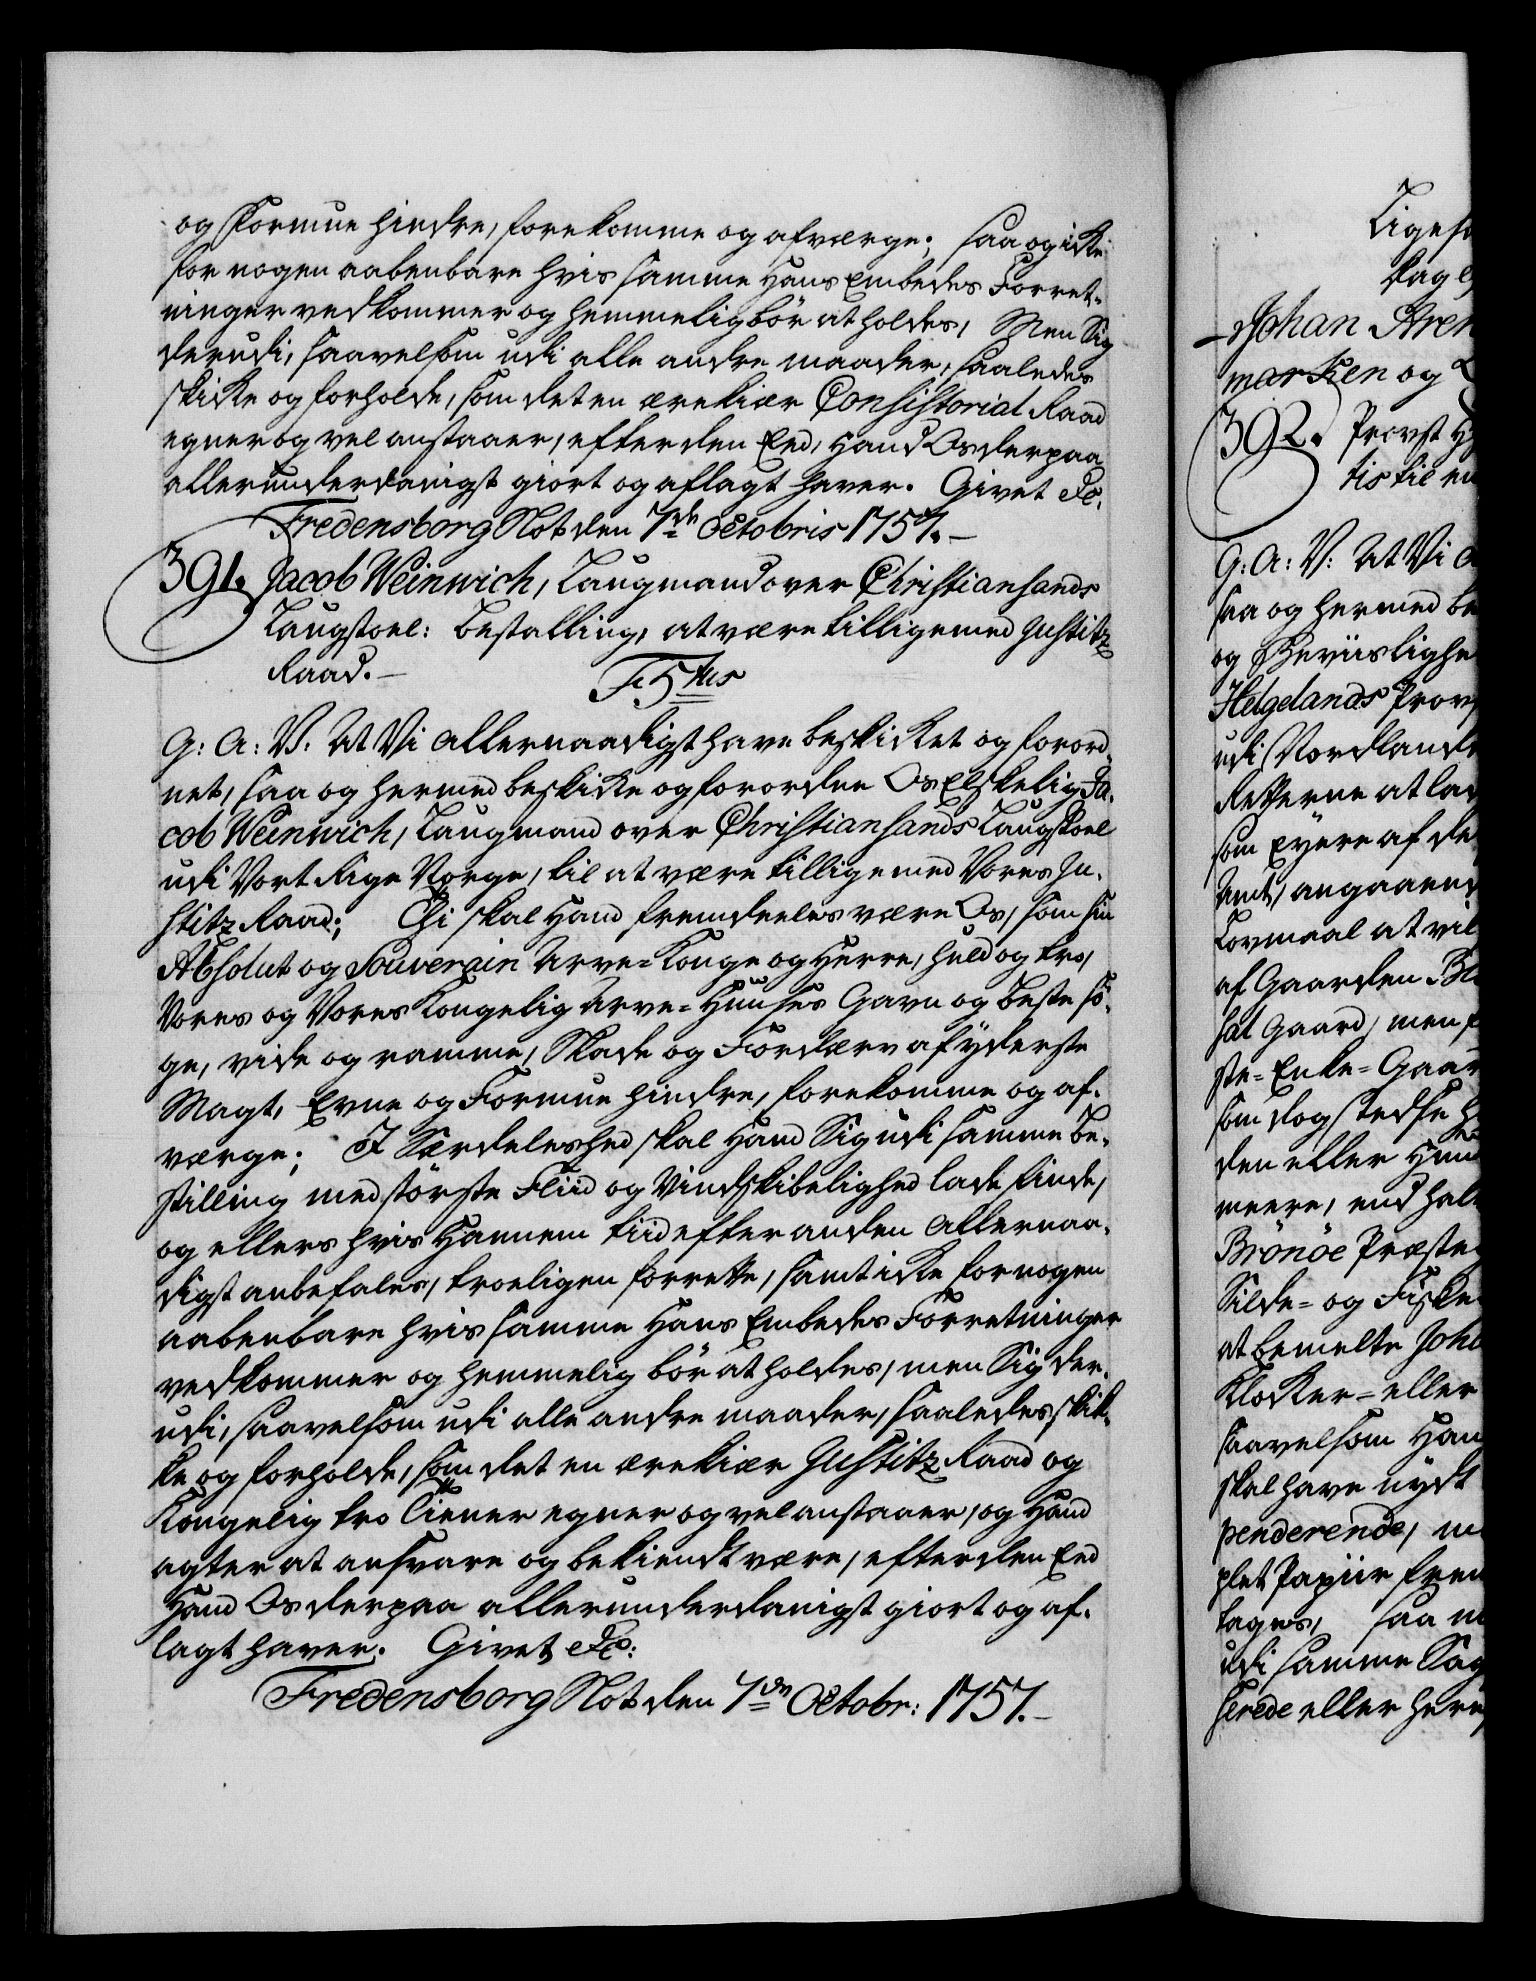 og Formue hindre, forekomme og afværge; saa og icke
for nogen aabenbare hvis samme Hans Embedes Forret-
ninger vedkommer og hemmelig bör at holdes, Men Sig
derudi, saavelsom udi alle andre maader, saaledes
skicke og forholde, som det en ærekiær Consistorial Raad
egner og vel anstaaer, efter den Eed, Hand Os derpaa
allerunderdanigst giort og aflagt haver. Givet &c.
Fredensborg Slot den 7de Octobris 1757.
391. Jacob Weinwich, Laugmand over Christiansands
Laugstoel: Bestalling, at være tillige med Justitz
Raad.
F. 5tus
G: A: V: At Vi allernaadigst have beskicket og forord-
net, saa og hermed beskicke og forordne Os Elskelig Ja-
cob Weinwich, Laugmand over Christiansands Laugstoel
udi Vort Rige Norge, til at være tillige med Vores Ju-
stitz Raad; Thi skal Hand fremdeeles være Os, som sin
Absolut og Souverain Arve-Konge og Herre, huld og tro,
Vores og Vores Kongelig Arve-Huuses Gavn og Beste sö-
ge, vide og ramme, Skade og Fordærv af yderste
Magt, Evne og Formue hindre, forekomme og af-
værge; I Særdeleshed skal Hand Sig udi samme Be-
stilling med störste Fliid og Vindskibelighed lade finde,
og ellers hvis Hannem tiid efter anden Allernaa-
digst anbefales, troeligen forrette, samt icke for nogen
aabenbare hvis samme Hans Embedes Forretninger
vedkommer og hemmelig bör at holdes, men Sig der-
udi, saavelsom udi alle andre maader, saaledes skik-
ke og forholde, som det en ærekiær Justitz Raad og
Kongelig tro Tiener egner og vel anstaaer, og Hand
agter at ansvare og bekiendt være, efter den Eed
Hand Os derpaa allerunderdanigst giort og af-
lagt haver. Givet &c:
Fredensborg Slot den 7de Octobr: 1757.
Johan
marken og
392. Provst
tis til
G: A: V: At Vi
saa og hermed be
og Beviislighe
Helgelands Prov
udi Nordland
Retterne at lad
som Eyere af de
Amt, angaaend
Lovmaal at vil
af Gaarden
sal Gaard, men
ste-Enke-Gaar
som dog stedse
den eller
meere, end hal
Brönöe Præste
Silde- og Fiske
at bemelte Joha
Klocker- eller
saavelsom Han
skal have nydt
penderende,
plet Papiir frem
tages, saa
udi samme Sag
serede eller here